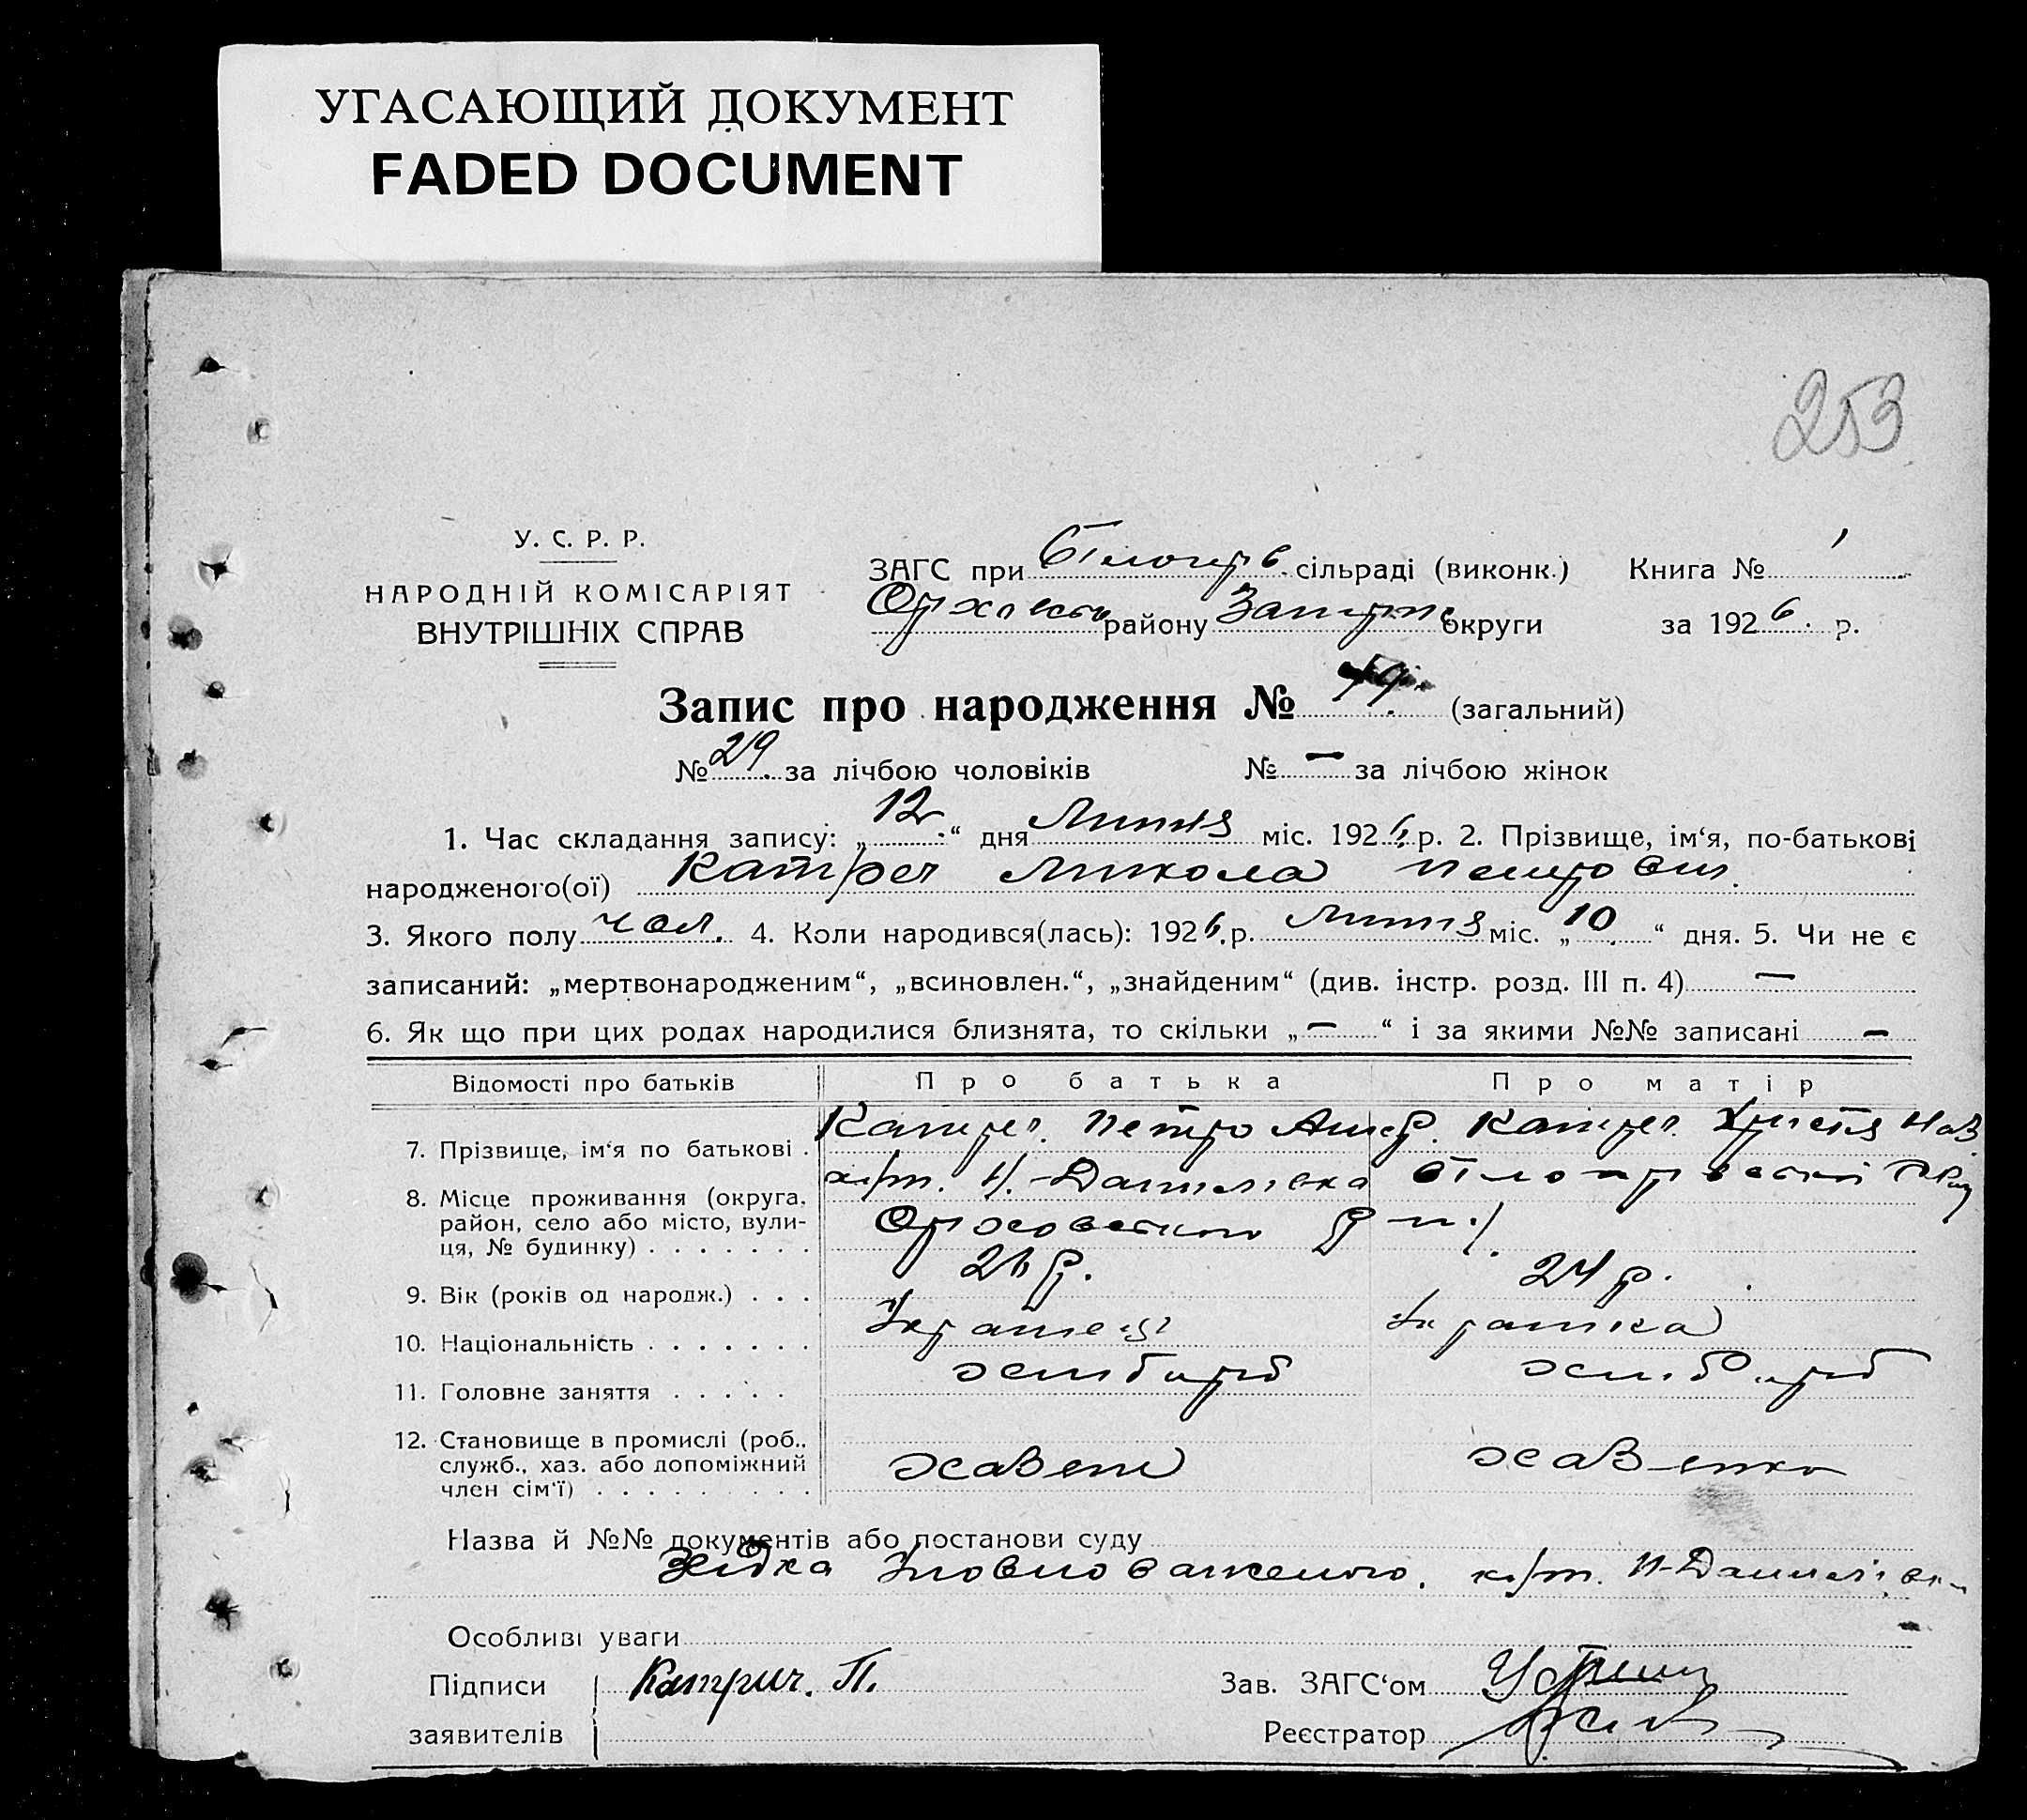 УГАСАЮЩИЙ ДОКУМЕНТ
FADED DOCUMENT
253
У. С. Р. Р.
НАРОДНІЙ КОМІСАРІЯТ
ВНУТРІШНІХ СПРАВ
ЗАГС при сільраді (виконк.) Книга № 1
району Запоріз округи за 1926 р.
Запис про народження № 49. (загальний)
№ 29. за лічбою чоловіків № — за лічбою жінок
1. Час складання запису: „12“ дня Липня міс. 1926 р. 2. Прізвище, ім‘я, по-батькові
народженого(ої) Катреч Микола Петрович
3. Якого полу чол. 4. Коли народився(лась): 1926.р. Липня міс. „10“ дня. 5. Чи не є
записаний: „мертвонародженим“, „всиновлен.“, „знайденим“ (див. інстр. розд. III п. 4) —
6. Як що при цих родах народилися близнята, то скільки „—“ і за якими №№ записані —
Відомості про батьків Про батька Про матір
7. Прізвище, ім‘я по батькові . Катреч. Петро Катреч. Христя
8. Місце проживання (округа, х/т. Н. Данилівка
район, село або місто, вули- Оріховського
ця, № будинку) . . . . . . .
9. Вік (років од народж.) . . . 26 р. 24 р.
10. Національність . . . . . . . Українець Українка
11. Головне заняття . . . . . хлібороб хлібороб
12. Становище в промислі (роб.,
служб., хаз. або допоміжний хазяїн хазяйка
член сім‘ї) . . . . . . . . .
Назва й №№ документів або постанови суду
Уповноваженого. х/т. Н-Данилівки
Особливі уваги —
Підписи Катрич. П. Зав. ЗАГС‘ом
заявителів Реєстратор